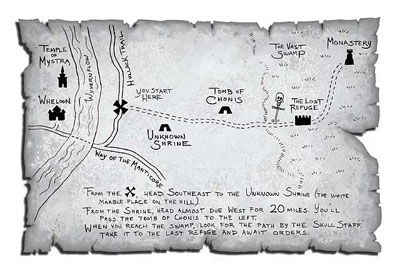 Temple of
Mystra
Wyvernflow
Hullack Trail
The Vast
Swamp
Monastery
Wheloon
You Start
Here
Tomb of
Chonis
The Lost
Refuge
Unknown
Shrine
Way of the Manticore
From the X, head Southeast to the Unknown Shrine (the white
marble place on the hill)
From the Shrine, head almost due West for 20 miles. You'll
pass the Tomb of Chonis to the left.
When you reach the swamp, look for the path by the Skull Staff.
Take it to the Last Refuge and await orders.